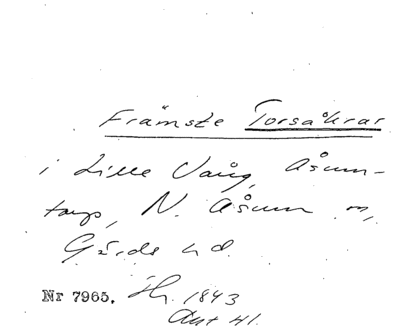 Främste Torsåkrar
i Lille Vång, Åsum-
torp, N. Åsum m,
Gärds hd.
Nr 7965. Hr. 1843
Akt 41.